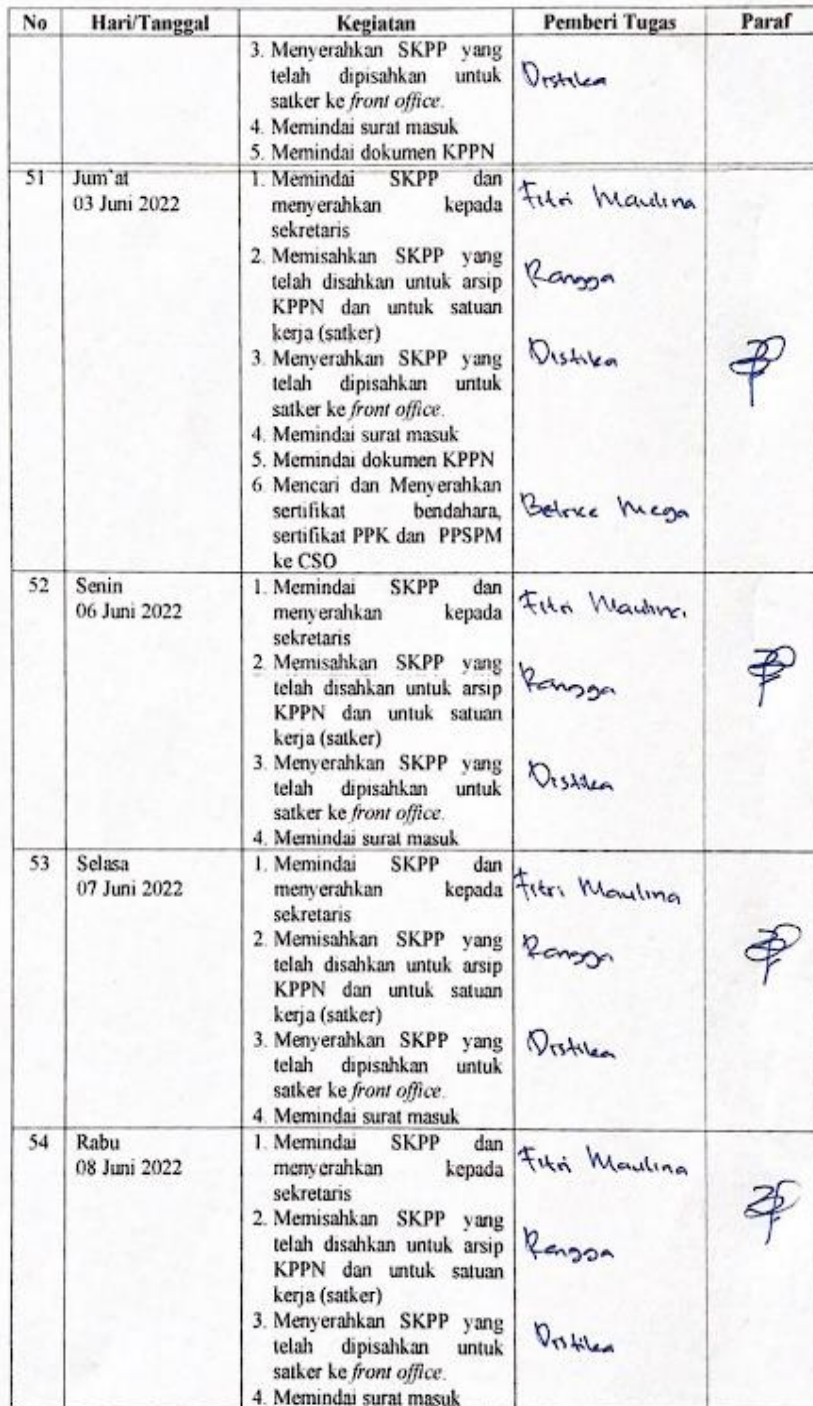 No Hari/Tanggal Kegiatan Pemberi Tugas Paraf
3. Menyerahkan SKPP yang
telah dipisahkan untuk
satker ke front office.
4. Memindai surat masuk
5. Memindai dokumen KPPN
Distika
51 Jum`at
03 Juni 2022
1. Memindai SKPP dan
menyerahkan kepada
sekretaris
Fitri Maulina
2. Memisahkan SKPP yang
telah disahkan untuk arsip
KPPN dan untuk satuan
kerja (satker)
Rangga
3. Menyerahkan SKPP yang
telah dipisahkan untuk
satker ke front office.
Distika
4. Memindai surat masuk
5. Memindai dokumen KPPN
6. Mencari dan Menyerahkan
sertifikat bendahara,
sertifikat PPK dan PPSPM
ke CSO
Mega
52 Senin
06 Juni 2022
1. Memindai SKPP dan
menyerahkan kepada
sekretaris
Fitri Maulina
2. Memisahkan SKPP yang
telah disahkan untuk arsip
KPPN dan untuk satuan
kerja (satker)
Rangga
3. Menyerahkan SKPP yang
telah dipisahkan untuk
satker ke front office.
Distika
4. Memindai surat masuk
53 Selasa
07 Juni 2022
1. Memindai SKPP dan
menyerahkan kepada
sekretaris
Fitri Maulina
2. Memisahkan SKPP yang
telah disahkan untuk arsip
KPPN dan untuk satuan
kerja (satker)
Rangga
3. Menyerahkan SKPP yang
telah dipisahkan untuk
satker ke front office.
Distika
4. Memindai surat masuk
54 Rabu
08 Juni 2022
1. Memindai SKPP dan
menyerahkan kepada
sekretaris
Fitri Maulina
2. Memisahkan SKPP yang
telah disahkan untuk arsip
KPPN dan untuk satuan
kerja (satker)
Rangga
3. Menyerahkan SKPP yang
telah dipisahkan untuk
satker ke front office.
Distika
4. Memindai surat masuk